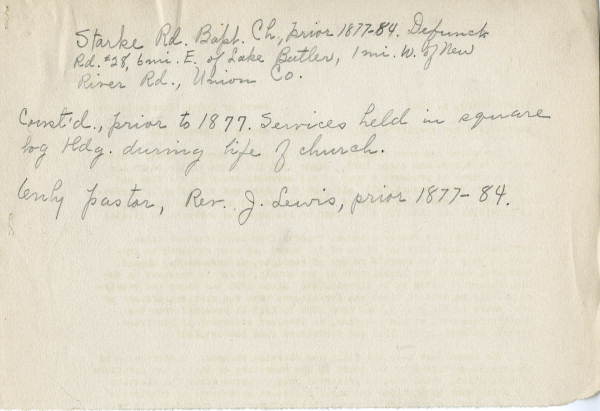 Starke Rd. Bapt. Ch., prior 1877-84. Defunct
Rd. #28, 6mi. E. of Lake Butler, 1 mi. W. of New
River Rd., Union Co.
Const'd., prior to 1877. Services held in square
log bldg. during life of church.
Only pastor, Rev. J. Lewis, prior 1877-84.